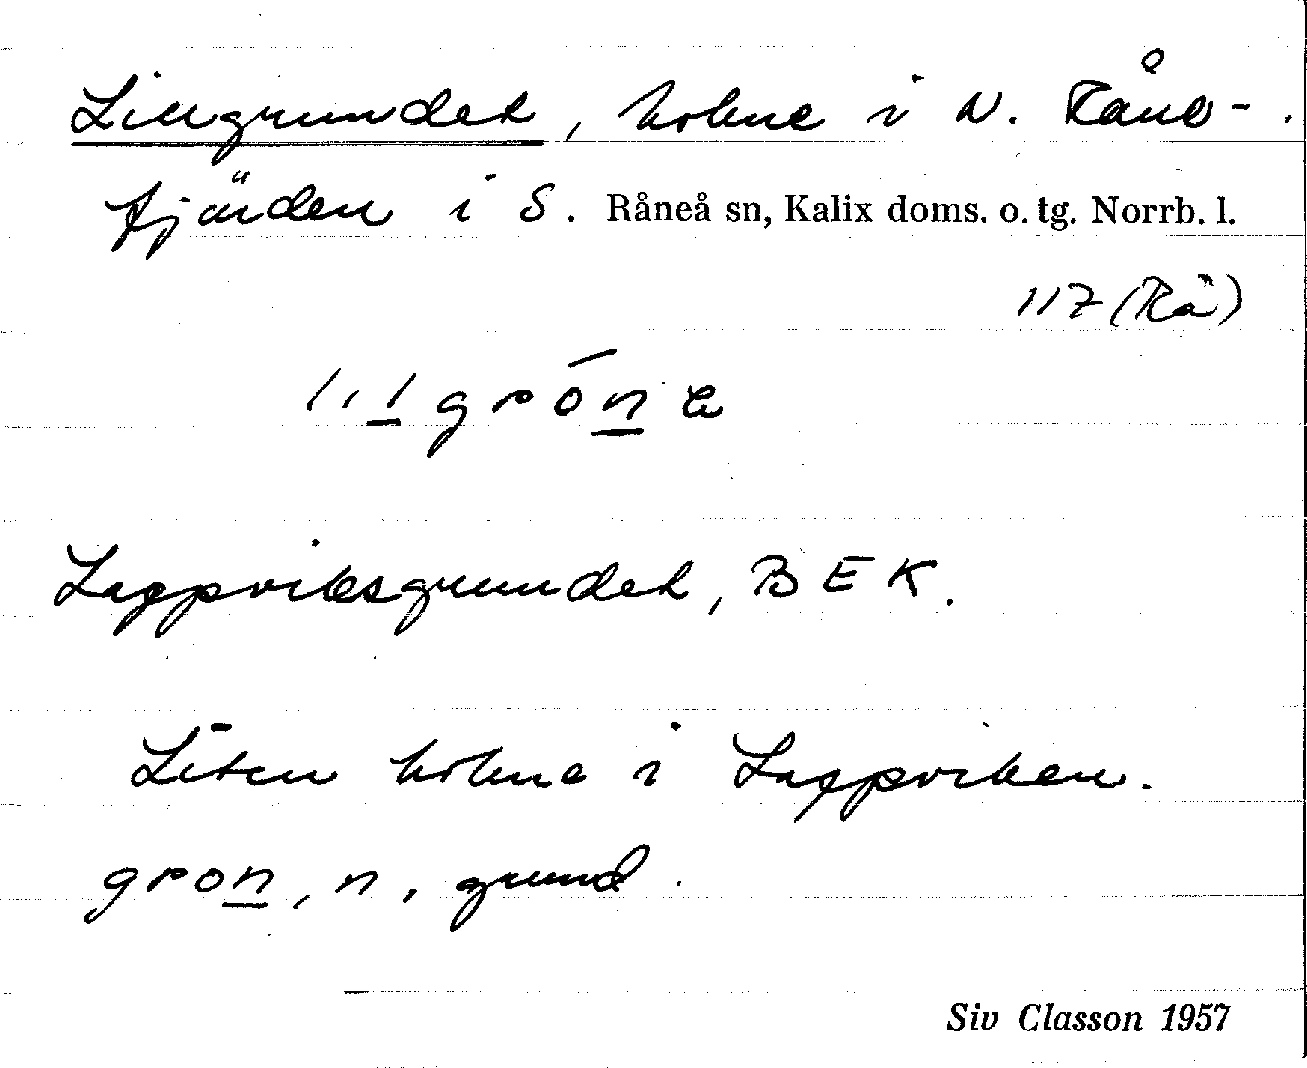 Lillgrundet, holme i N. Råne-
fjärden i S. Råneå sn, Kalix doms. o. tg. Norrb. l.
117 (Rå)
lılgrón̲e
Lappviksgrundet, BEK.
Liten holme i Lappviken.
gron̲, n, grund.
Siv Classon 1957